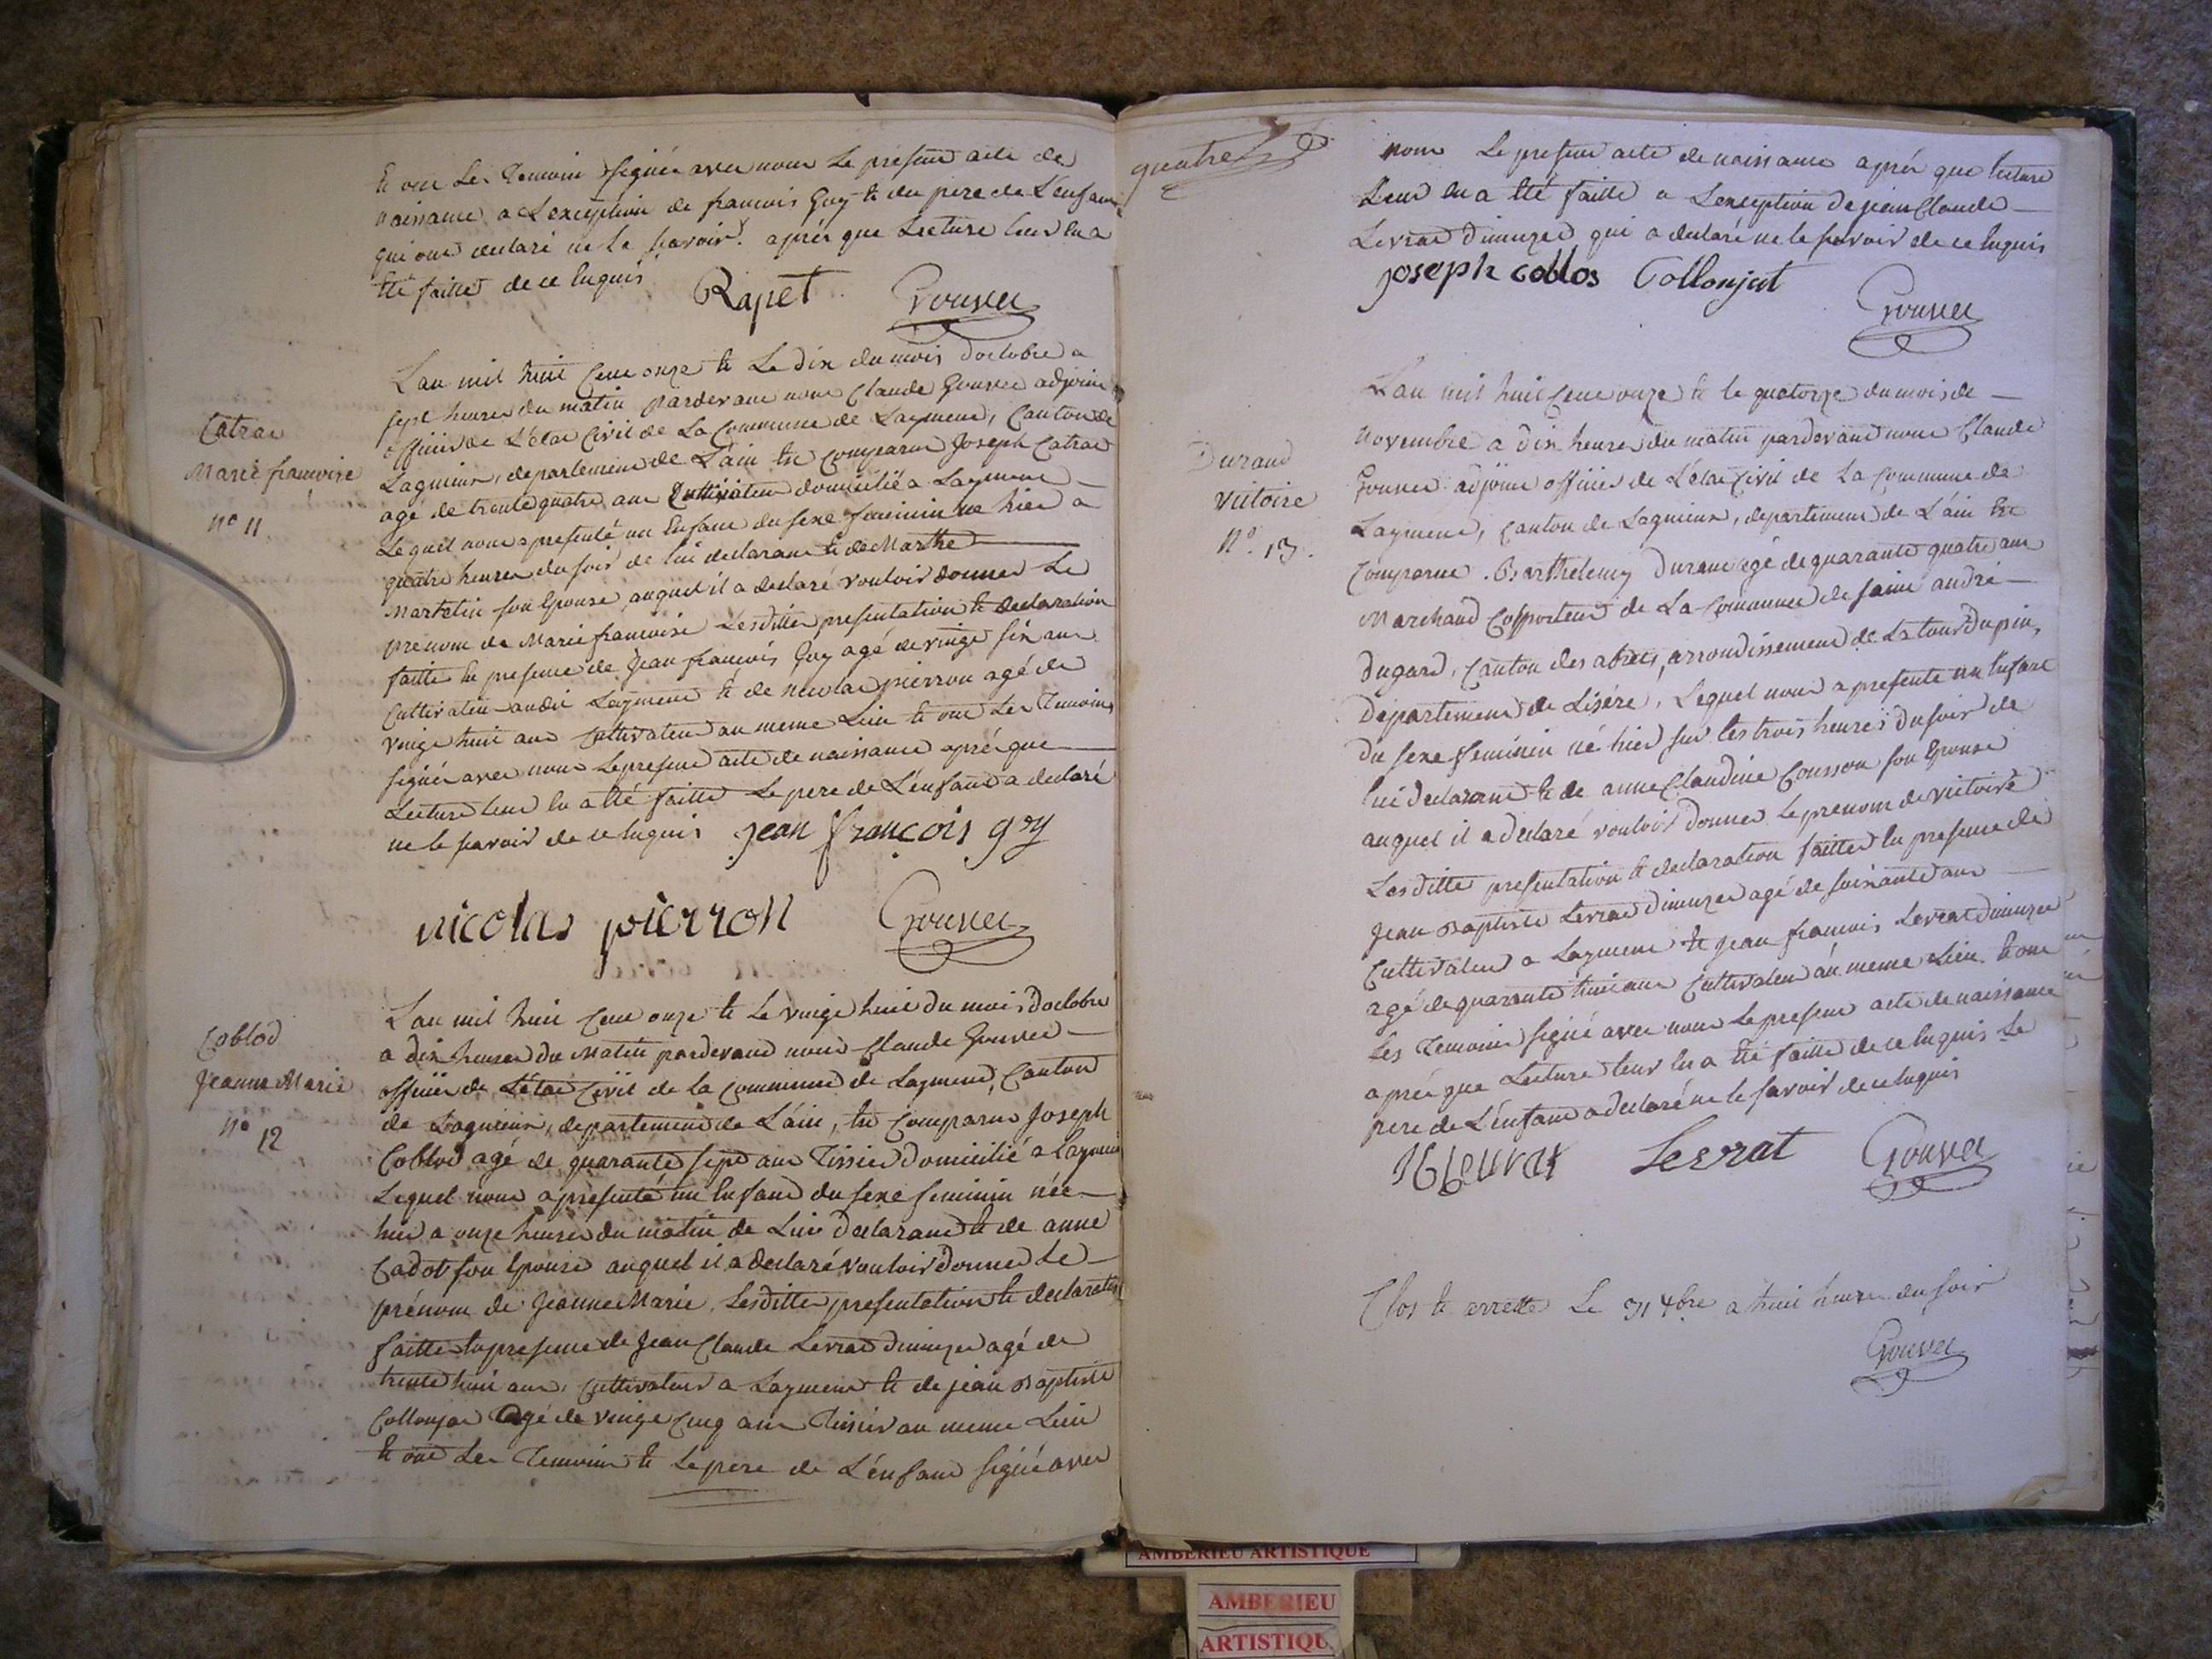 et ont les temoins signés avec nous le present acte de
naissance a Lexception de francois Guy et du pere de L'enfant
qui ont declaré ne le savoir. après que Lecture leur en a
été faitte de ce enquis
Rapet Gouvet
Catrat
Marie françoise
n° 11
L'an mil huit cent onze et Le dix du mois doctobre a
sept heures du matin pardevant nous Claude Gouvet adjoint
officier de L'état Civil de La Commune de Laymens, Canton de
Lagnieux, departement de L'ain est comparu Joseph Catrat
agé de trente quatre ans Cultivateur domicilié a Laymens
Lequel nous a presenté un Enfant du sexe feminin né hier a
quatre heures du soir de lui declarant et de Marthe
Martelin son Epouse auquel il a declaré vouloir donner Le
prenom de Marie francoise Lesdittes presentation et declaration
faitte en presence de Jean francois Guy agé de vingt six ans
Cultivateur audit Laymens et de nicolas pierron agé de
vingt huit ans Cultivateur au meme Lieu et ont Les Temoins
signés avec nous Le present acte de naissance après que
Lecture leur en a été faitte Le pere de L'enfant a declaré
ne le savoir de ce enquis jean françois guy
nicolas pierron Gouvet
Coblod
Jeanne Marie
n° 12
L'an mil huit cent onze et Le vingt huit du mois Doctobre
a dix heures du Matin pardevant nous Claude Gouvet
officier de L'état Civil de la commune de Laymens, Canton
de Lagnieux, departement de L'ain, est comparu Joseph
Coblod agé de quarante sept ans Tissier Domicilié a Laymens
Lequel nous a presenté un Enfant du sexe feminin née
hier a onze heures du matin de Lui Declarant et de anne
Cadot son Epouse auquel il a Declaré vouloir Donner Le
prénom de Jeanne Marie, Lesdittes presentation et declaration
faitte en presence de Jean Claude Levrat Dimuzet agé de
trente huit ans, Cultivateur a Laymens et de jean Baptiste
Collonjat agé de vingt Cinq ans Tissier au meme Lieu
et ont Les Temoins et Le pere de L'enfant signé avec
quatre
nous Le present acte de naissance après que lecture
Leur en a été faitte a Lexception de jean Claude
Levrat Dimuzet qui a declaré ne le savoir de ce enquis
joseph coblos Collonjat
Gouvet
Durand
Victoire
N°. 13.
L'an mil huit Cent onze et le quatorze du mois de
Novembre a dix heures du matin pardevant nous Claude
Gouvet adjoint officier de L'état Civil de La Commune de
Laymens, Canton de Lagnieux, departement de L'ain est
Comparue Barthelemy Durand agé de quarante quatre ans
Marchand Colporteur de La Commune de saint andré
Dugard, Canton des abrets, arrondissement de La tour Dupin,
Departement de Lisére, Lequel nous a presente un Enfant
du sexe feminin né hier sur les trois heures du soir de
lui Declarant et de anne Claudine Cousson son Epouse
auquel il a declaré vouloir donner Le prenom de victoire
Lesditte presentation et declaration faittes en presence de
Jean Baptiste Levrat Dimuzet agé de soixante ans
Cultivateur a Laymens et jean francois Levrat Dimuzet
agé de quarante huit ans Cultivateur au meme Lieu et ont
Les Temoins signé avec nous Le present acte de naissance
après que Lecture leur en a été faitte de ce enquis Le
pere de L'enfant a declaré ne le savoir de ce enquis
Levrat Gouvet
Clos et arretté Le 31 Xbre a huit heures du soir
Gouvet
AMBERIEU ARTISTIQUE
AMBERIEU
ARTISTIQU